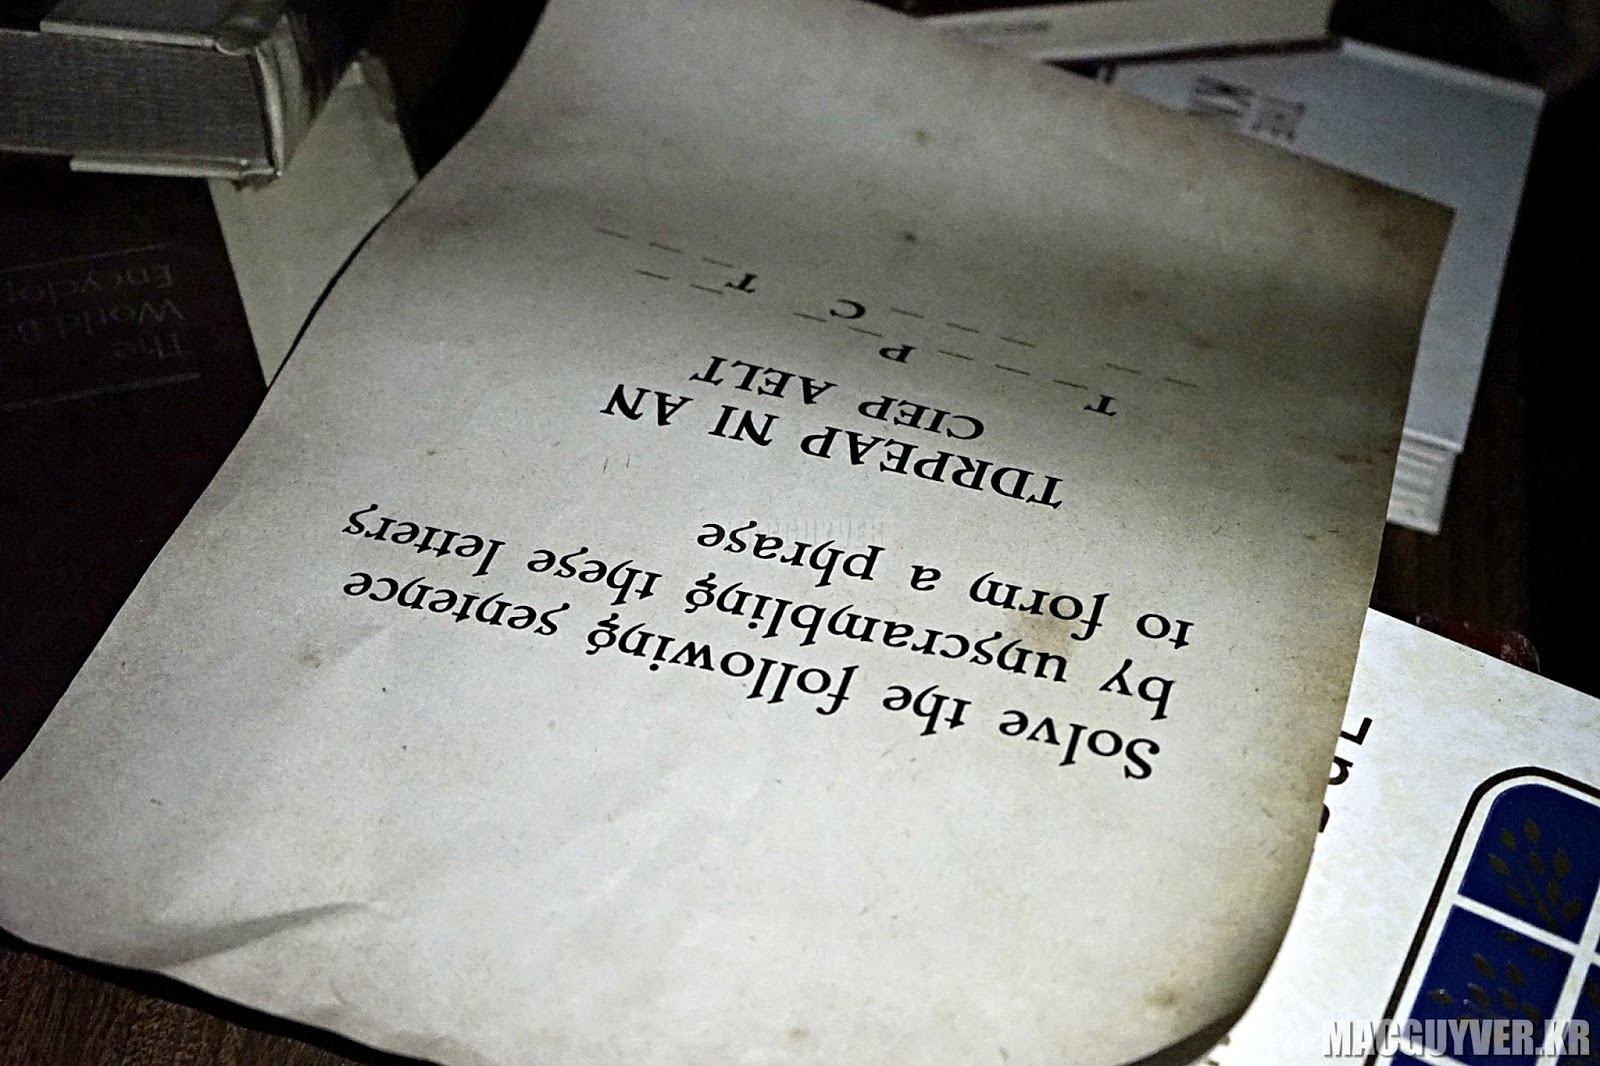 Solve the following sentence
by unscrambling these letters
to form a phrase
TDRPEAP NI AN
CIEP AELT
T _ _ _ P _ _ _ _ _ _
_ _ _ C T _ _ _
The
World Bo
Encyclop
MACGUYVER.KR